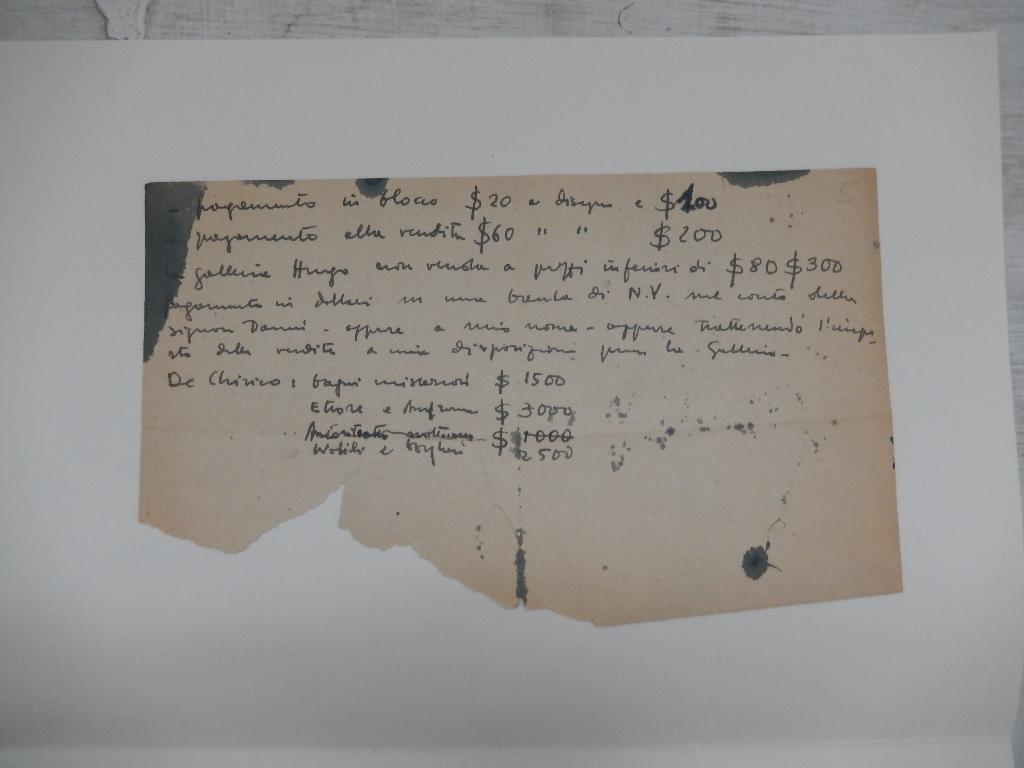 - pagamento in blocco $20 a disegno e $100
pagamento alla vendita $60 " " $200
galleria Hugo non venda a prezzi inferiori di $80 $300
pagamento in dollari in una banca di N.Y. nel conto della
signora Danni - oppure a mio nome - oppure trattenendo l'impo-
sto della vendita a mia disposizione presso la Galleria -
De Chirico: bagni misteriosi $ 1500
Ettore e Andromaca $ 3000
$ 1000
Mobili e 2500
5